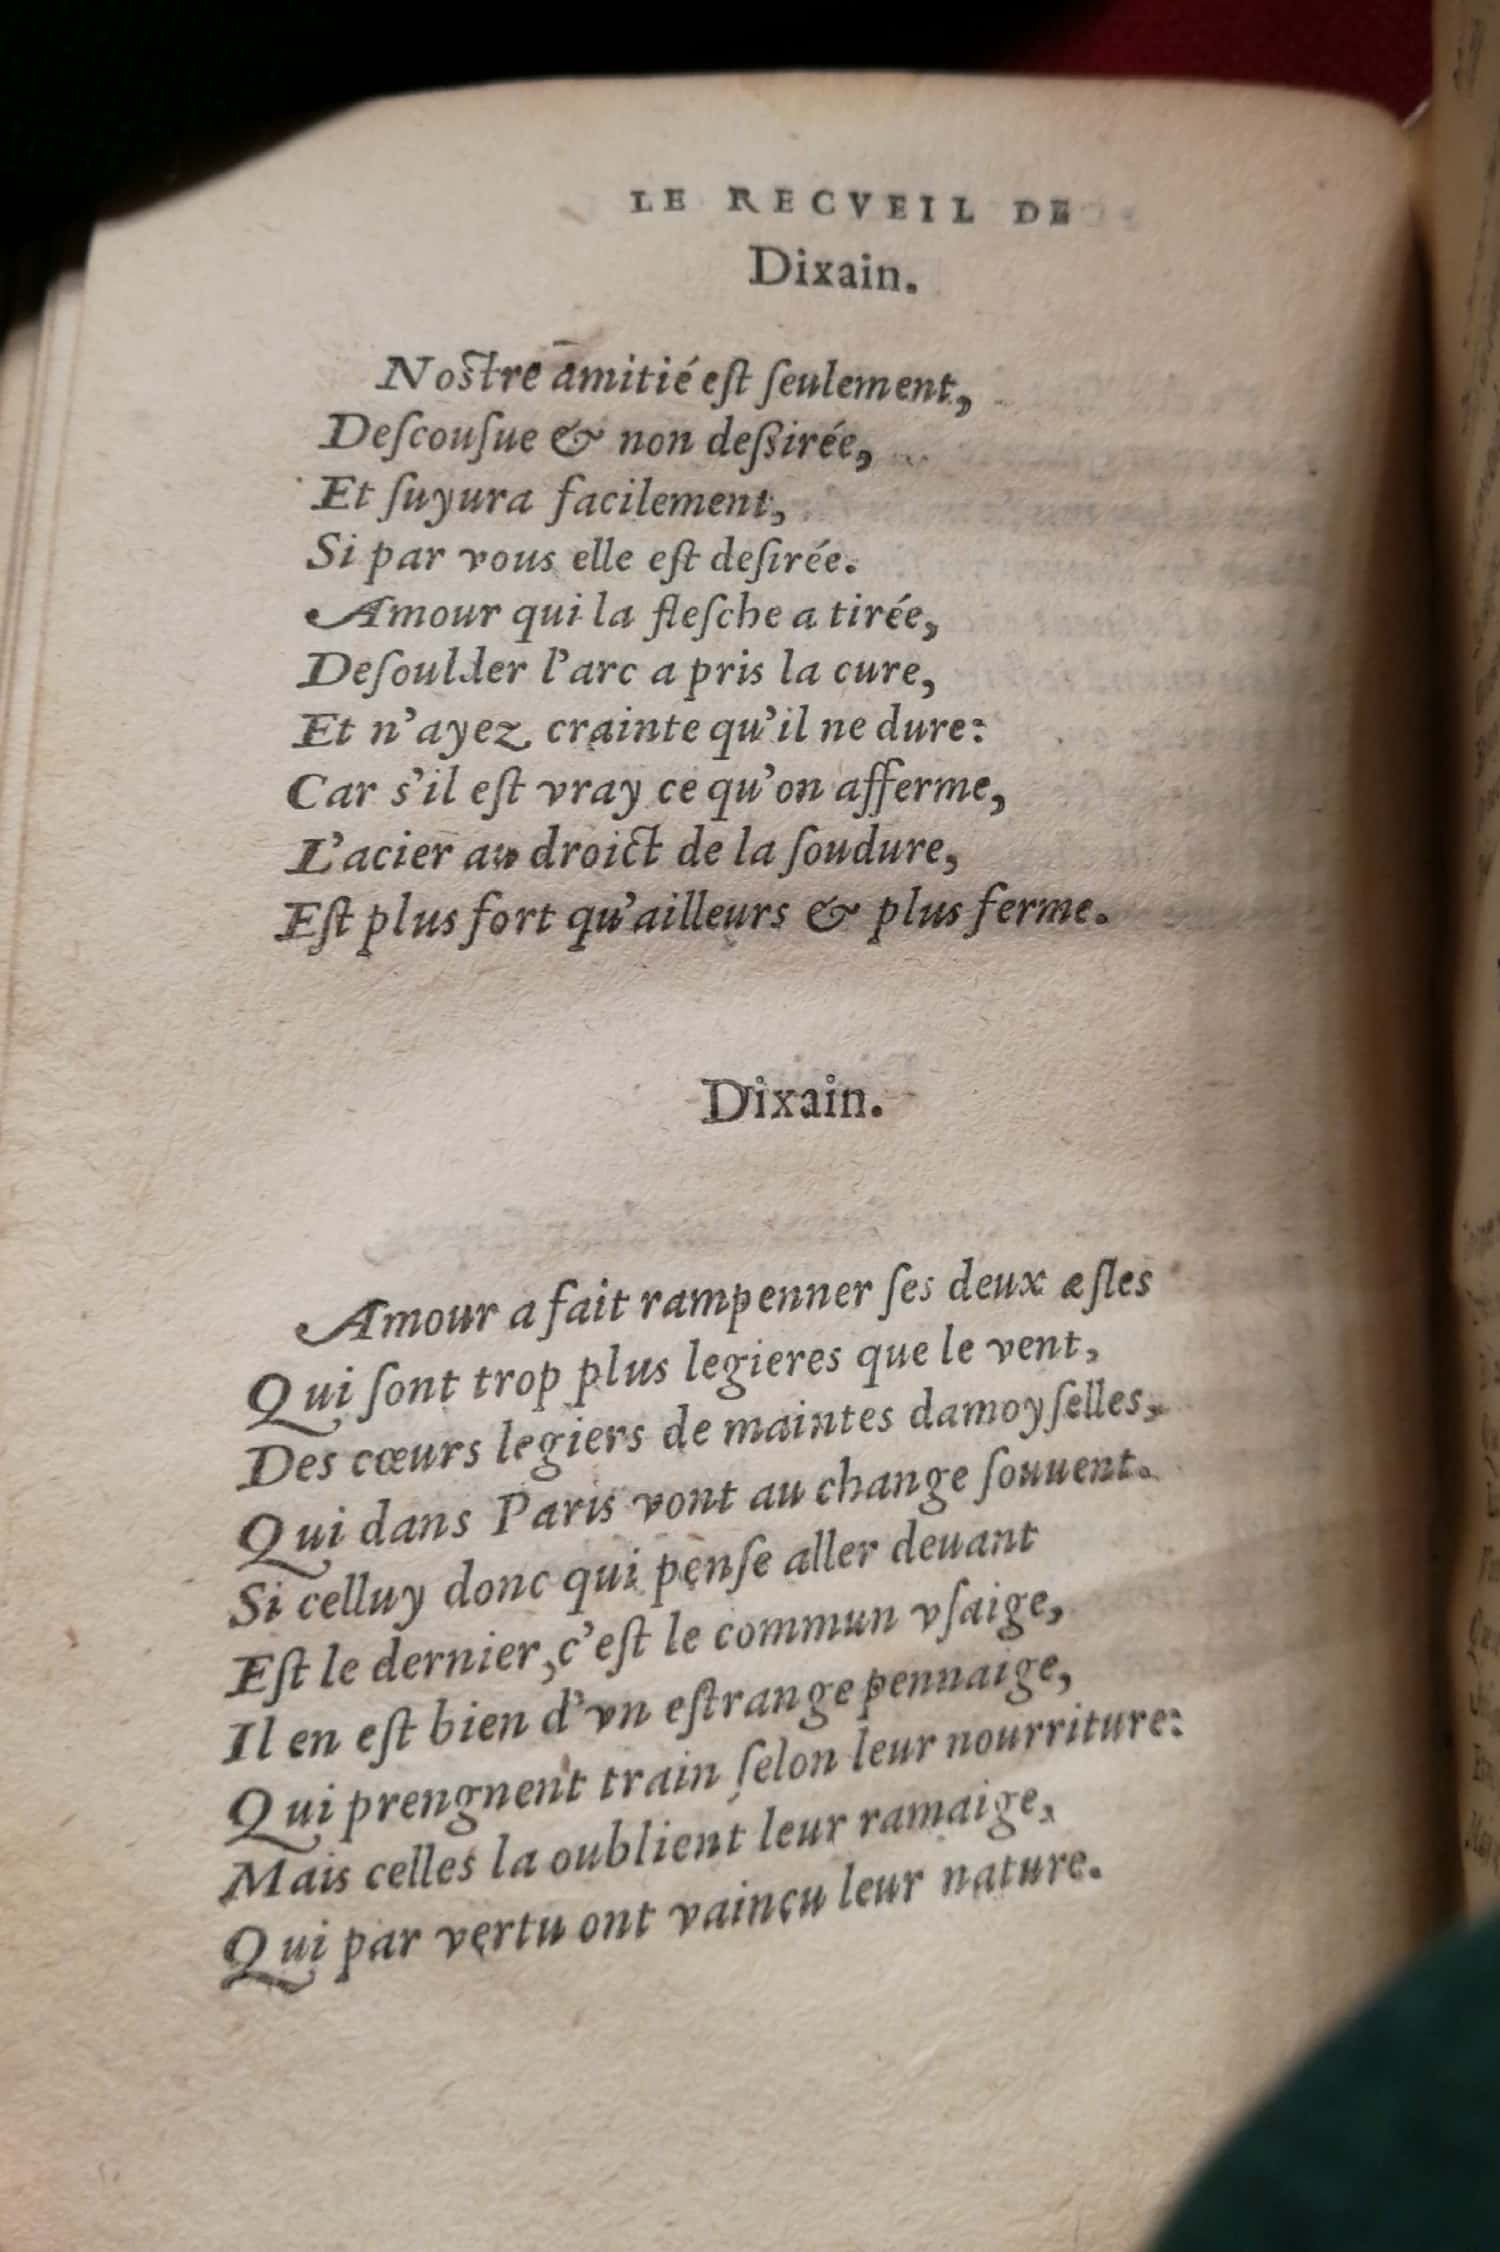 LE RECVEIL DE
Dixain.
Nostre amitié eſt ſeulement,
Deſcouſue & non deſsirée,
Et ſuyura facilement,
Si par vous elle eſt deſirée.
Amour qui la fleſche a tirée,
Deſoulder l'arc a pris la cure,
Et n'ayez crainte qu'il ne dure:
Car s'il eſt vray ce qu'on afferme,
L'acier au droict de la ſoudure,
Eſt plus fort qu'ailleurs & plus ferme.
Dixain.
Amour a fait rampenner ſes deux æſles
Qui ſont trop plus legieres que le vent,
Des cœurs legiers de maintes damoyſelles,
Qui dans Paris vont au change ſouuent.
Si celluy donc qui penſe aller deuant
Eſt le dernier, c'eſt le commun vſaige,
Il en eſt bien d'vn eſtrange pennaige,
Qui prengnent train ſelon leur nourriture:
Mais celles la oublient leur ramaige,
Qui par vertu ont vaincu leur nature.